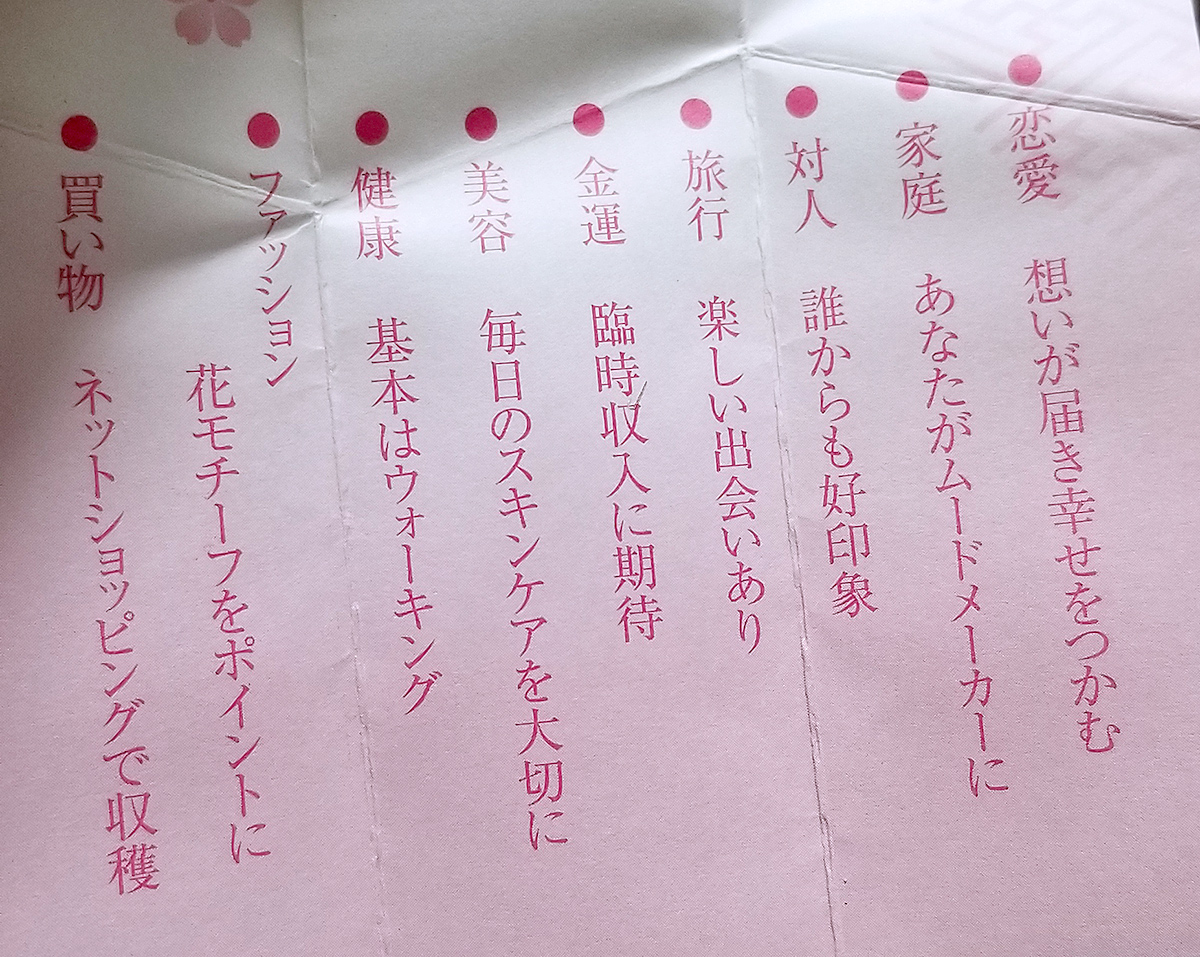 ●恋愛　想いが届き幸せをつかむ
●家庭　あなたがムードメーカーに
●対人　誰からも好印象
●旅行　楽しい出会いあり
●金運　臨時収入に期待
●美容　毎日のスキンケアを大切に
●健康　基本はウォーキング
●ファッション
花モチーフをポイントに
●買い物　ネットショッピングで収穫